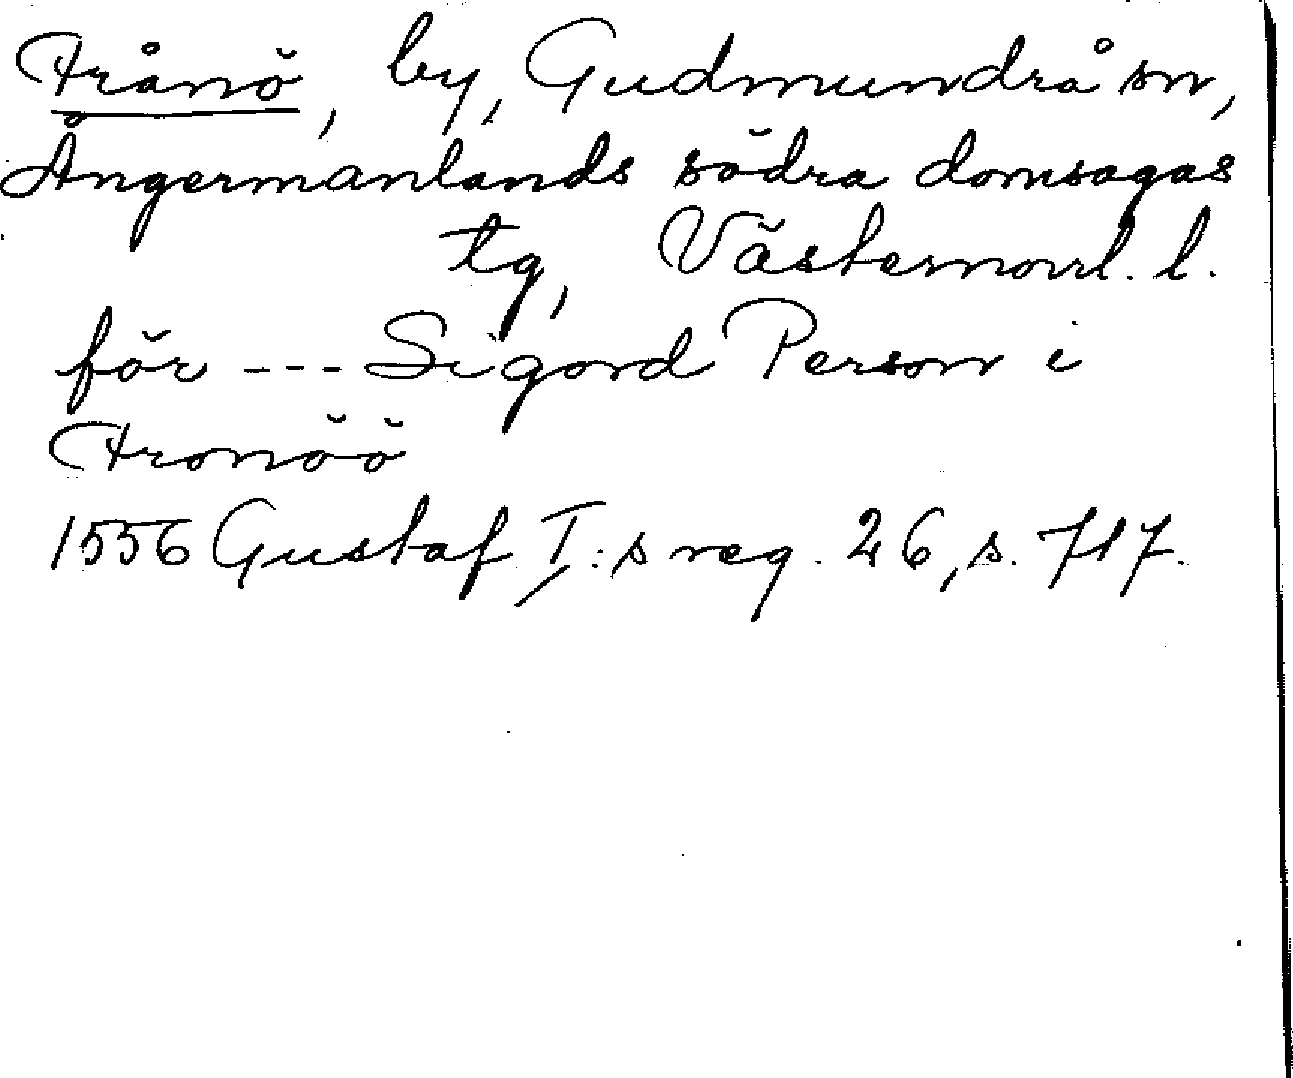 Frånö, by, Gudmundrå sn,
Ångermanlands södra domsagas
tg, Västernorrl. l.
för --- Sigord Person i
Fronöö
1556 Gustaf I:s reg. 26, s. 717.